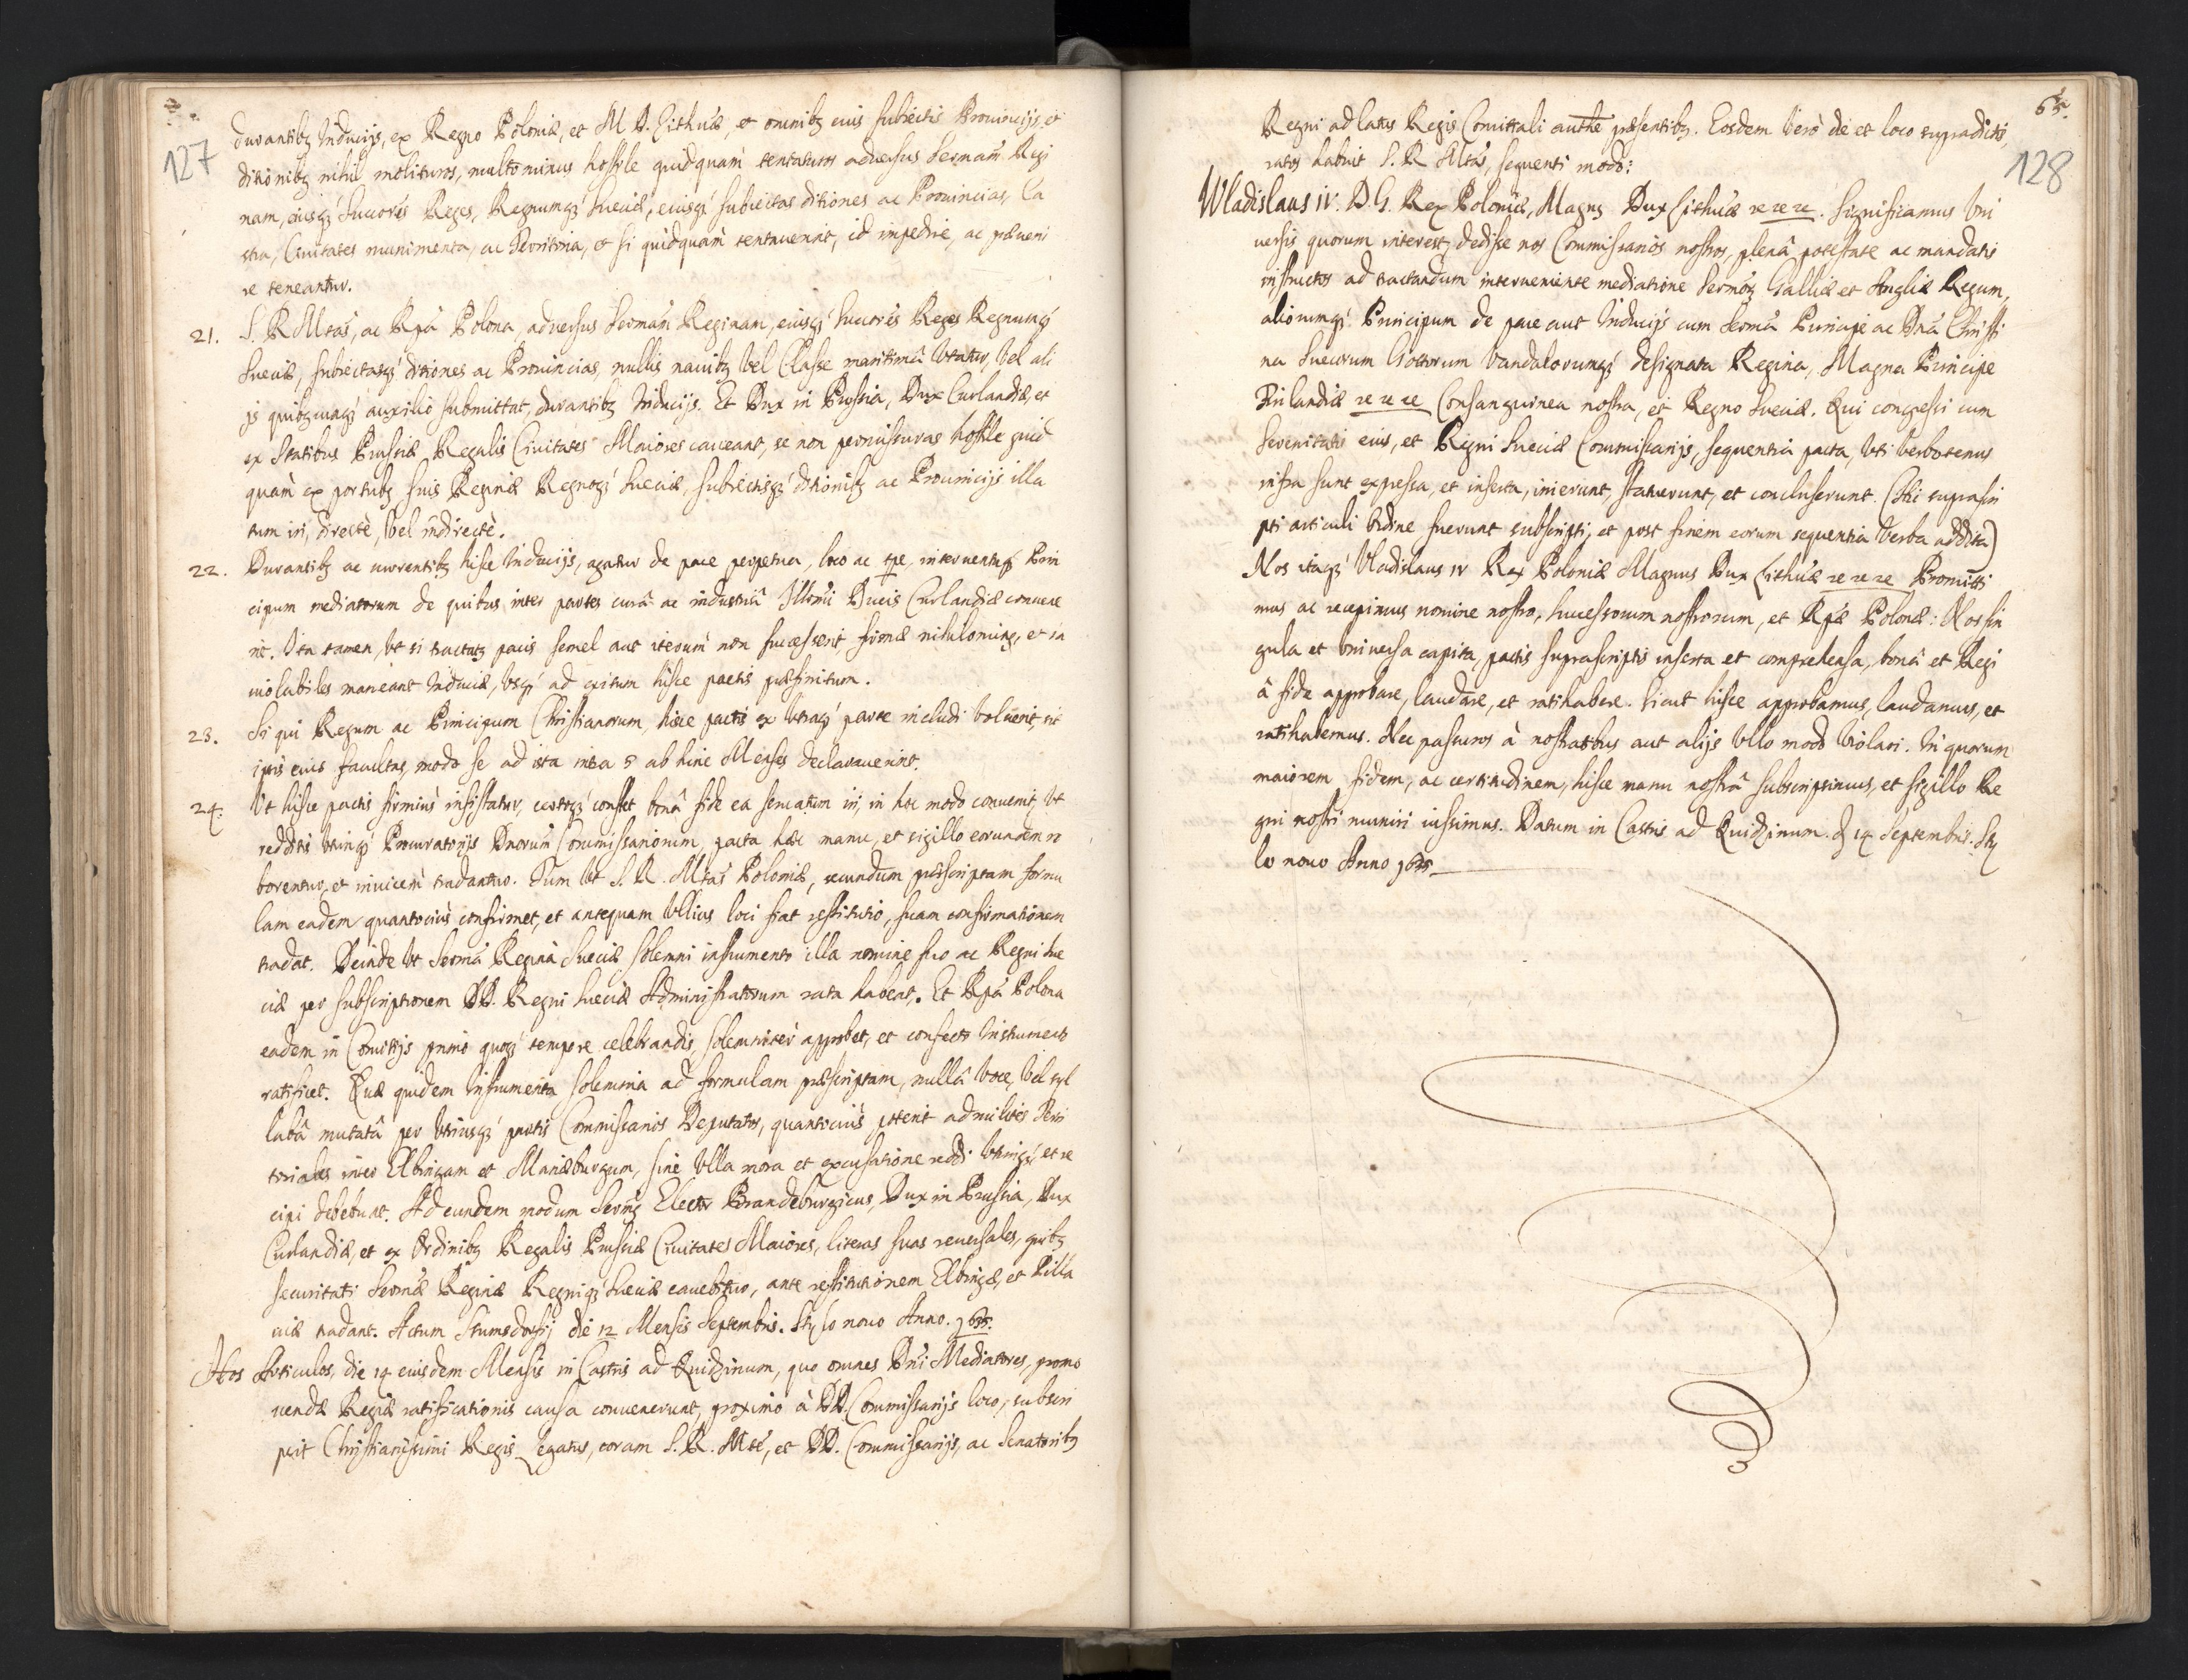 127
durantibꝫ Inducijs, ex Regno Poloniæ, et M. D. Lithuæ, et omnibꝫ eius subiectis Prouincijs, et
ditionibꝫ nihil molituros, multo minus hostile quidquam tentaturos aduersus Sermam Regi
nam, eiusqꝫ Succores Reges, Regnumqꝫ Sueciæ, eiusqꝫ subiectas ditiones ac Prouincias, Ca
stra, Ciuitates munimenta, ac Territoria, et si quidquam tentauerint, id impedire, ac præueni
re teneantur.
21. S. R. Mtas, ac Rpa Polona, aduersus Sermam Reginam, eiusqꝫ Succores Reges Regnumqꝫ
Sueciæ, subiectasqꝫ ditiones ac Prouincias, nullis nauibꝫ vel Classe maritimâ vtatur, vel ali
js quibꝫcunqꝫ auxilio submittat, durantibꝫ Inducijs. Et Dux in Prussia, Dux Curlandiæ, et
ex Statibus Prussiæ Regalis Ciuitates Maiores caueant, se non permissuras hostile quid
quam ex portubꝫ suis Reginæ Regnoqꝫ Sueciæ, subiectisqꝫ ditionibꝫ ac Prouincijs illa
tum iri, directè, vel indirectè.
22. Durantibꝫ ac currentibꝫ hisce Inducijs, agatur de pace perpetua, loco ac tpe, interuentuqꝫ Prin
cipum mediatorum de quibus inter partes curâ ac industriâ Illmi Ducis Curlandiæ conuene
rit. Ita tamen, vt si tractatꝫ pacis semel aut iterum non successerit, firmæ nihilominꝫ, et in
uiolabiles maneant Induciæ, vsqꝫ ad exitum hisce pactis præfinitum.
23. Si qui Regum ac Principum Christianorum, hisce pactis ex vtraqꝫ parte includi voluerit, sit
ipsis eius facultas, modo se ad ista intra 5 ab hinc Menses declarauerint.
24. Vt hisce pactis firmius insistatur, certoqꝫ constet bonâ fide ea seruatum iri, in hoc modo conuenit, vt
redditis vtrinqꝫ Procuratorijs Dnorum Commissariorum, pacta hæc manu, et sigillo eorundem ro
borentur, et inuicem tradantur. Tum vt S. R. Mtas Poloniæ, secundum præscriptam formu
lam eadem quantocius confirmet, et antequam vllius loci fiat restitutio, suam confirmationem
tradat. Deinde vt Serma Regina Sueciæ solemni instrumento illa nomine suo ac Regni Sue
ciæ per subscriptionem DD. Regni Sueciæ Administratorum rata habeat. Et Rpa Polona
eadem in Comitijs primo quoqꝫ tempore celebrandis, solemniter approbet, et confecto Instrumento
ratificet. Quæ quidem Instrumenta solemnia ad formulam præscriptam, nullâ voce, vel syl
labâ mutatâ per vtriusqꝫ partis Commissarios Deputatos, quantocius poterit ad milites Terri
toriales inter Elbingam et Mariæburgum, sine vlla mora et excusatione reddi vtrinqꝫ, et re
cipi debebunt. Ad eundem modum Sermꝫ Elector Brandeburgicus, Dux in Prussia, Dux
Curlandiæ, et ex Ordinibꝫ Regalis Prussiæ Ciuitates Maiores, literas suas reuersales, quibꝫ
securitati Sermæ Reginæ Regniqꝫ Sueciæ cauebitur, ante restitutionem Elbingæ, et Pilla
uiæ tradant. Actum Stumsdorfij die 12 Mensis Septembris. Stylo nouo Anno. 1635.
Hos Articulos, die 14 eiusdem Mensis in Castris ad Quidzinum, quo omnes Dni Mediatores, promo
uendæ Regiæ ratificationis causa conuenerunt, proximo à DD. Commissarijs loco, subscri
psit Christianissimi Regis Legatus, coram S. R. Mte, et DD. Commissarijs, ac Senatoribꝫ
128
Regni ad latus Regis Comitiali authe præsentibꝫ. Eosdem verò die et loco supradictis,
ratos habuit S. R. Mtas, sequenti modo:
Wladislaus IV. D. G. Rex Poloniæ, Magnꝫ Dux Lithuæ re re re. Significamus vni
uersis quorum interest, dedisse nos Commissarios nostros, plenâ potestate ac mandatis
instructos ad tractandum interueniente mediatione Sermorꝫ Galliæ et Angliæ Regum,
aliorumqꝫ Principum de pace aut Inducijs cum Serma Principe ac Dna Christi
na Suecorum Gottorum Vandalorumqꝫ designata Regina, Magna Principe
Finlandiæ re re re Consanguinea nostra, et Regno Sueciæ. Qui congressi cum
Serenitatis eius, et Regni Sueciæ Commissarijs, sequentia pacta, vti verbotenus
infra sunt expressa, et inserta, inierunt, statuerunt, et concluserunt. (Hic suprascri
pti articuli ordine fuerunt subscripti, et post finem eorum sequentia verba addita)
Nos itaqꝫ Vladislaus IV Rex Poloniæ Magnus Dux Lithuæ re re re Promitti
mus ac recipimus nomine nostro, successorum nostrorum, et Rpæ Polonæ: Nos sin
gula et vniuersa capita, pactis suprascriptis inserta et comprehensa, bonâ et Regi
â fide approbare, laudare, et ratihabere. Sicut hisce approbamus, laudamus, et
ratihabemus. Nec passuros à nostratibus aut alijs vllo modo violari. In quorum
maiorem fidem, ac certitudinem, hisce manu nostrâ subscripsimus, et sigillo Re
gni nostri muniri iussimus. Datum in Castris ad Quidzinum. d 14 Septembris. Sty
lo nouo Anno 1635.